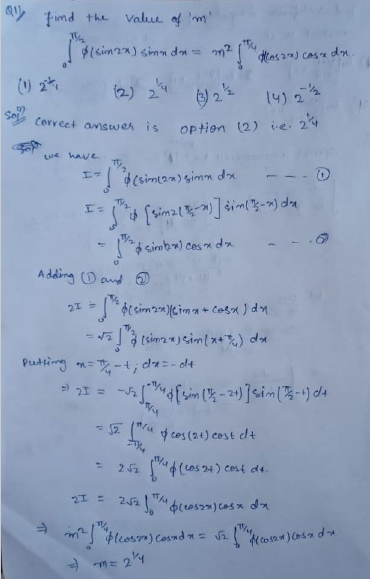 Q11) find the value of 'm'
∫₀^(π/2) φ(sin2x) sinx dx = m² ∫₀^(π/4) φ(cos2x) cosx dx.
(2) 2^(1/4) (3) 2^(1/2) (4) 2^(-1/2)
Solⁿ) correct answer is option (2) i.e. 2^(1/4)
we have
I = ∫₀^(π/2) φ(sin(2x) sinx dx --- ①
I = ∫₀^(π/2) φ[sin2(π/2-x)] sin(π/2-x) dx
= ∫₀^(π/2) φ sin(2x) cosx dx --- ②
Adding ① and ②
2I = ∫₀^(π/2) φ(sin2x)(sinx + cosx) dx
= √2 ∫₀^(π/2) φ(sin2x) sin(x+π/4) dx
Putting x = π/4 - t; dx = -dt
⇒ 2I = -√2 ∫_(π/4)^(-π/4) φ[sin(π/2-2t)] sin(π/2-t) dt
= √2 ∫_(-π/4)^(π/4) φ cos(2t) cost dt
= 2√2 ∫₀^(π/4) φ(cos2t) cost dt.
2I = 2√2 ∫₀^(π/4) φ(cos2x) cosx dx
⇒ m² ∫₀^(π/4) φ(cos2x) cosx dx = √2 ∫₀^(π/4) φ(cos2x) cosx dx
⇒ m = 2^(1/4)